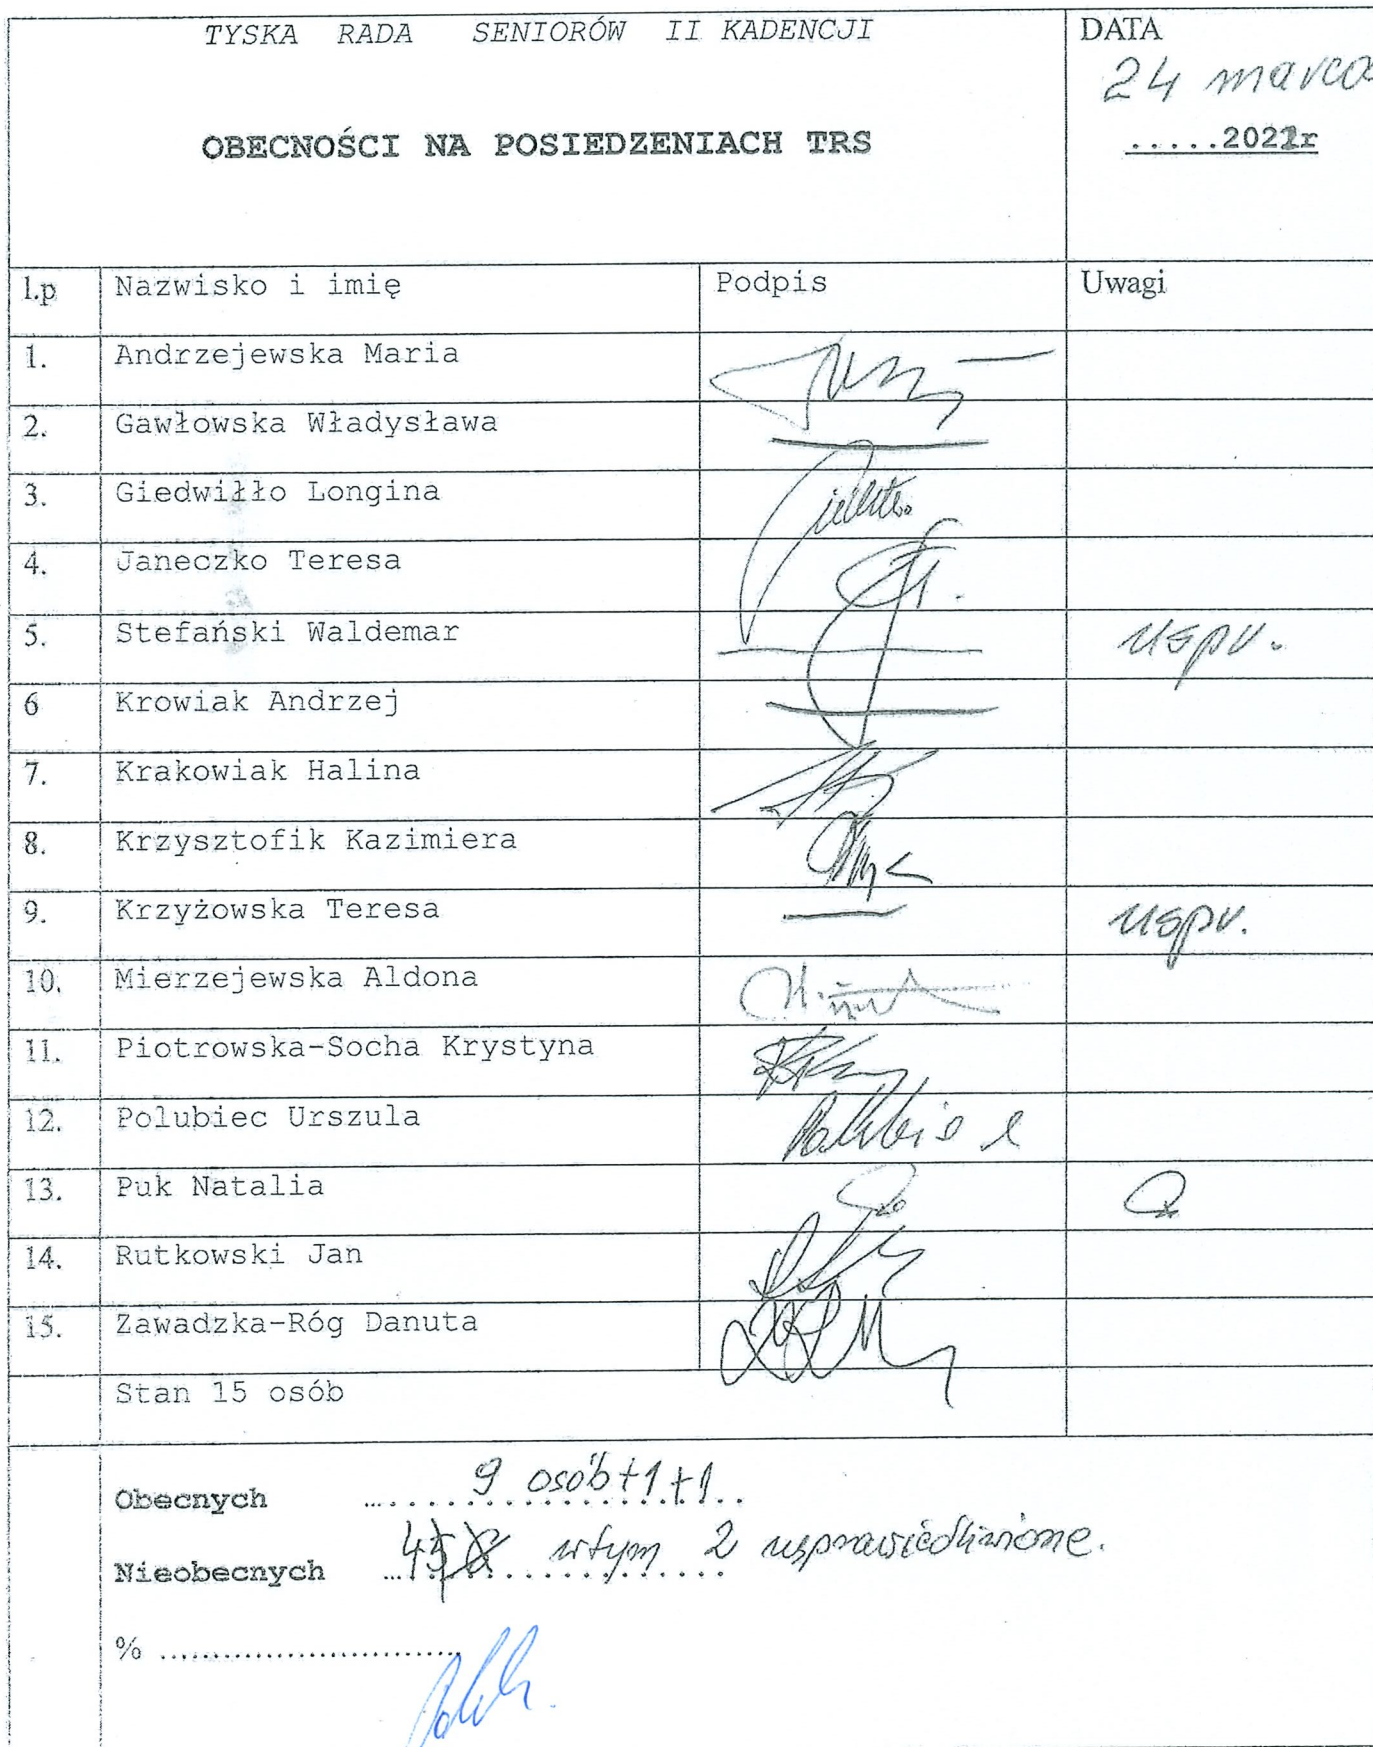 TYSKA RADA SENIORÓW II KADENCJI
OBECNOŚCI NA POSIEDZENIACH TRS
DATA
24 marca
.....2022r
l.p Nazwisko i imię Podpis Uwagi
1. Andrzejewska Maria
2. Gawłowska Władysława
3. Giedwiłło Longina
4. Janeczko Teresa
5. Stefański Waldemar uspr.
6 Krowiak Andrzej
7. Krakowiak Halina
8. Krzysztofik Kazimiera
9. Krzyżowska Teresa uspr.
10. Mierzejewska Aldona
11. Piotrowska-Socha Krystyna
12. Polubiec Urszula
13. Puk Natalia
14. Rutkowski Jan
15. Zawadzka-Róg Danuta
Stan 15 osób
Obecnych 9 osób+1+1
Nieobecnych 4 w tym 2 usprawiedliwione.
% ..............................